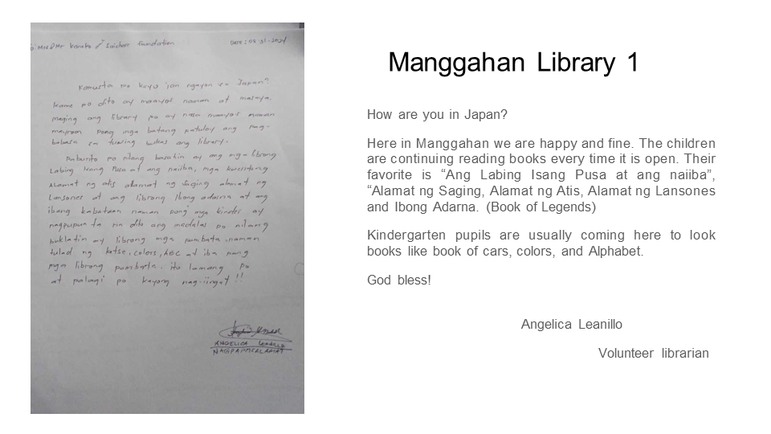 Kamusta po kayo jan ngayon sa Japan?
kame po dito ay maayos naman at masaya,
maging ang library po ay nasa maayos naman
meron pong mga batang patuloy ang pag-
babasa sa tuwing bukas ang library.
Paborito po nilang basahin ay ang mga librong
Labing Isang Pusa at ang naiiba, mga kwentong
Alamat ng atis alamat ng saging alamat ng
Lansones at ang librong Ibong adarna at ang
ibang kabataan naman pong mga kinder ay
nagpupunta dito ang madalas po nilang
buklatin ay librong mga pambata naman
tulad ng kotse, colors, ABC at iba pang
mga librong pambata. ito lamang po
at palagi po kayong nag-iingat!!
ANGELICA LEANILLO
NAGPAPASALAMAT
Manggahan Library 1
How are you in Japan?
Here in Manggahan we are happy and fine. The children
are continuing reading books every time it is open. Their
favorite is “Ang Labing Isang Pusa at ang naiiba”,
“Alamat ng Saging, Alamat ng Atis, Alamat ng Lansones
and Ibong Adarna. (Book of Legends)
Kindergarten pupils are usually coming here to look
books like book of cars, colors, and Alphabet.
God bless!
Angelica Leanillo
Volunteer librarian